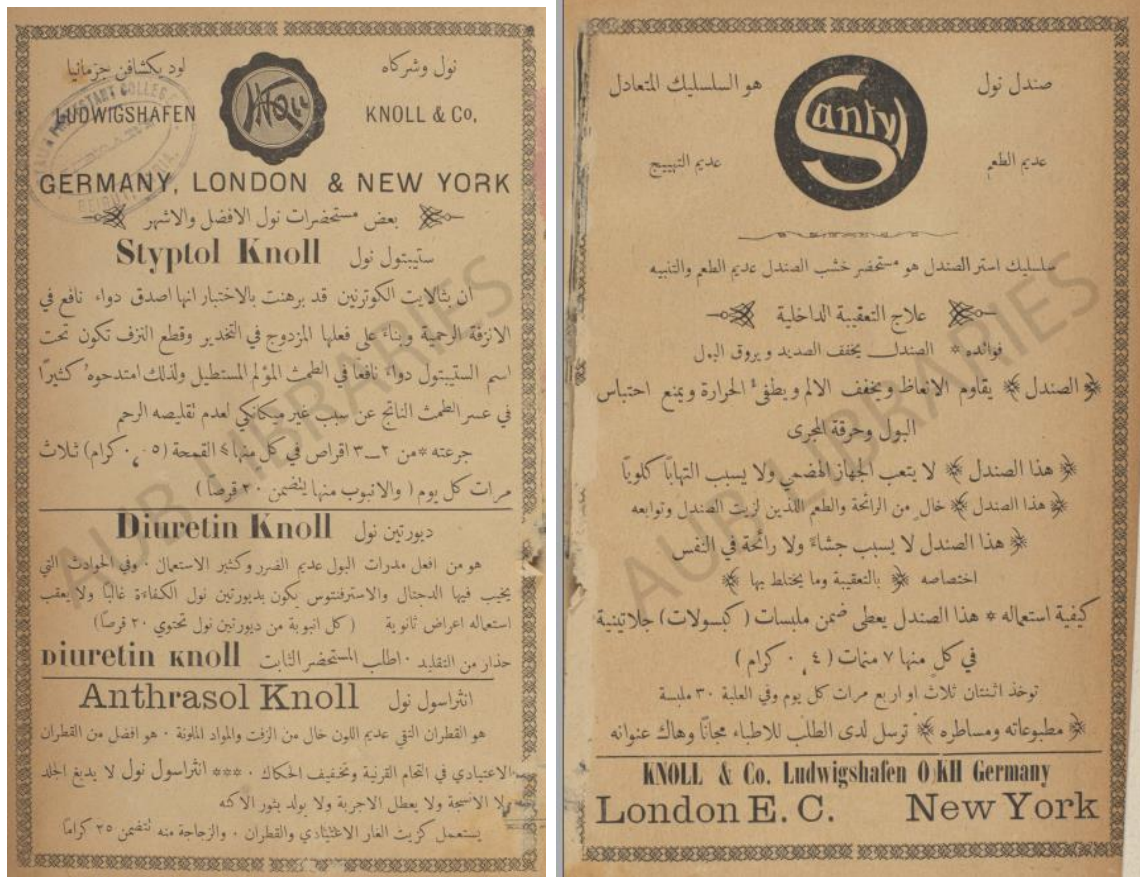 نول وشركاه
لود يكشافن جرمانيا
KNOLL & Co,
Knoll
LUDWIGSHAFEN
GERMANY, LONDON & NEW YORK
بعض مستحضرات نول الافضل والاشهر
Styptol Knoll ستيبتول نول
ان بثالايت الكوترنين قد برهنت بالاختبار انها اصدق دواء نافع في
الانزفة الرحمية وبناءً على فعلها المزدوج في التخدير وقطع النزف تكون تحت
اسم الستيبتول دواءً نافعاً في الطمث المؤلم المستطيل ولذلك امتدحوهُ كثيرًا
في عسر الطمث الناتج عن سبب غير ميكانيكي لعدم تقليصه الرحم
جرعته * من ٢–٣ اقراص في كل منها القمحة (٠,٠٥ كرام) ثلاث
مرات كل يوم (والانبوب منها يتضمن ٢٠ قرصاً)
Diuretin Knoll ديورتين نول
هو من افعل مدرات البول عديم الضرر وكثير الاستعمال . وفي الحوادث التي
يخيب فيها الدجتال والاسترفنتوس يكون بديورتين نول الكفاءة غالبًا ولا يعقب
استعماله اعراض ثانوية (كل انبوبة من ديورتين نول تحتوي ٢٠ قرصاً)
حذار من التقليد . اطلب المستحضر الثابت Diuretin Knoll
Anthrasol Knoll انثراسول نول
هو القطران النقي عديم اللون خال من الزفت والمواد الملونة . هو افضل من القطران
الاعتيادي في التحام القرنية وتخفيف الحكاك . *** انثراسول نول لا يدبغ الجلد
ولا الانسجة ولا يعطل الاجربة ولا يولد بثور الاكنه
يستعمل كزيت الغار الاعتيادي والقطران . والزجاجة منه تتضمن ٢٥ كراماً
صندل نول
هو السلسليك المتعادل
Santyl
عديم الطعم
عديم التهييج
سلسليك استر الصندل هو مستحضر خشب الصندل عديم الطعم والتنبيه
علاج التعقيبة الداخلية
فوائده * الصندل يخفف الصديد ويروق البول
الصندل يقاوم الانعاظ ويخفف الالم ويطفئ الحرارة ويمنع احتباس
البول وحرقة المجرى
هذا الصندل لا يتعب الجهاز الهضمي ولا يسبب التهابًا كلويًا
هذا الصندل خالٍ من الرائحة والطعم اللذين لزيت الصندل وتوابعه
هذا الصندل لا يسبب جشاءً ولا رائحة في النفس
اختصاصه بالتعقيبة وما يختلط بها
كيفية استعماله * هذا الصندل يعطى ضمن ملبسات (كبسولات) جلاتينية
في كل منها ٧ قمحات (٠,٤ كرام)
توخذ اثنتان ثلاث او اربع مرات كل يوم وفي العلبة ٣٠ ملبسة
مطبوعاته ومساطره ترسل لدى الطلب للاطباء مجاناً وهاك عنوانه
KNOLL & Co. Ludwigshafen O|KH Germany
London E. C. New York
AUB LIBRARIES
AUB LIBRARIES